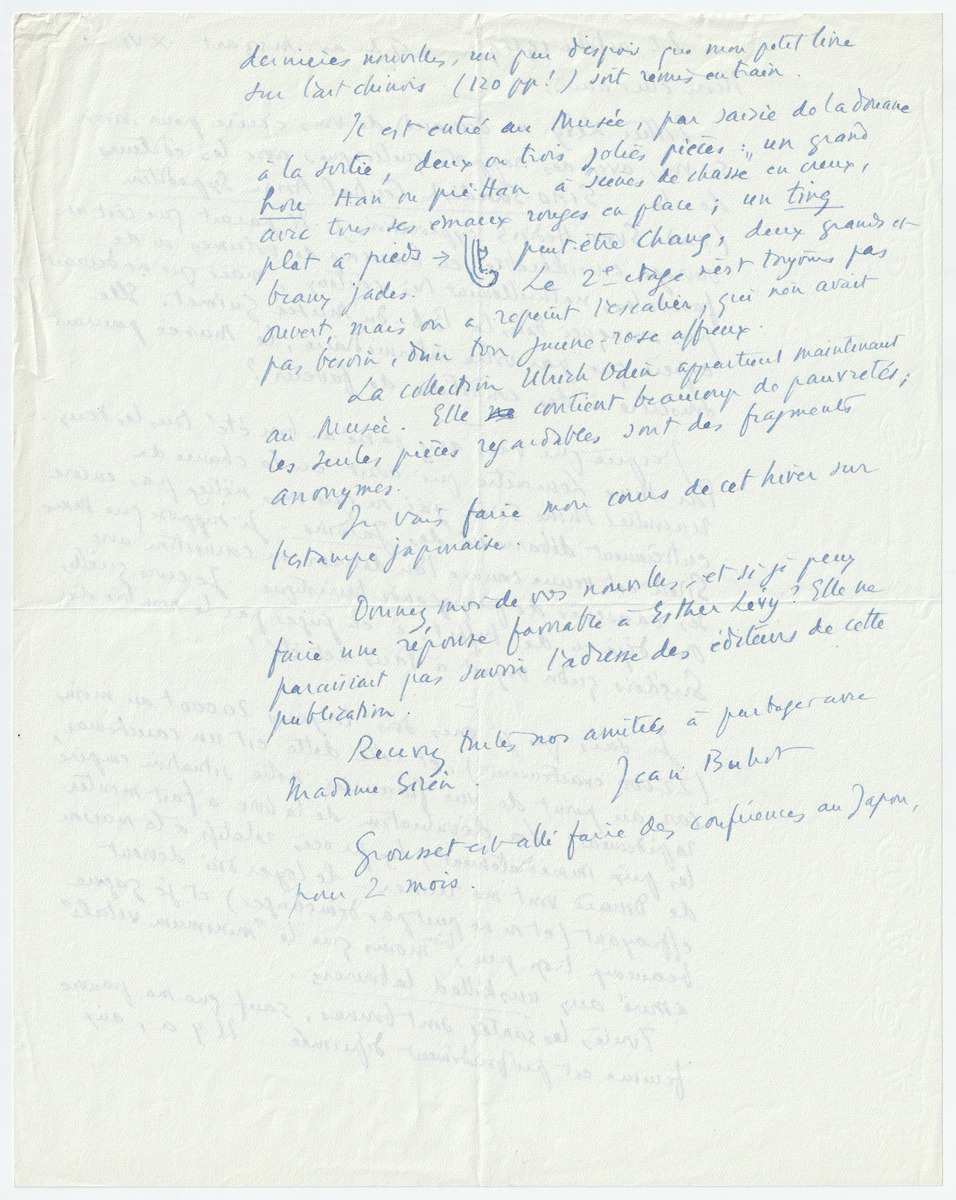 dernières nouvelles, un peu d'espoir que mon petit livre
sur l'art chinois (120 pp!) soit remis en train.
Il est entré au Musée, par saisie de la douane
à la sortie, deux ou trois jolies pièces : un grand
hou Han ou pré-Han à scènes de chasse en creux,
avec tous ses émaux rouges en place ; un ting
plat à pieds → peut-être Chang, deux grands et
beaux jades. Le 2e étage n'est toujours pas
ouvert, mais on a repeint l'escalier, qui n'en avait
pas besoin, d'un ton jaune-rose affreux.
La collection Ulrich Odin appartient maintenant
au Musée. Elle contient beaucoup de pauvretés ;
les seules pièces regardables sont des fragments
anonymes.
Je vais faire mon cours de cet hiver sur
l'estampe japonaise.
Donnez moi de vos nouvelles, et si je peux
faire une réponse favorable à Esther Lévy? Elle ne
paraissait pas savoir l'adresse des éditeurs de cette
publication.
Recevez toutes nos amitiés à partager avec
Madame Sirén.
Jean Buhot
Grousset est allé faire des conférences au Japon,
pour 2 mois.